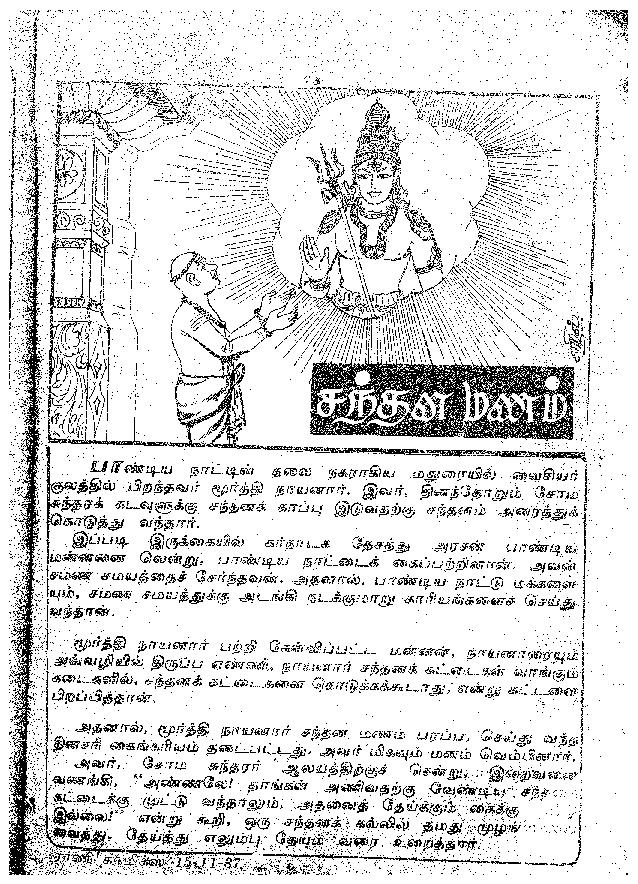 சந்தன மணம்
பாண்டிய நாட்டின் தலை நகராகிய மதுரையில் வைசியர்
குலத்தில் பிறந்தவர் மூர்த்தி நாயனார். இவர், தினந்தோறும் சோம
சுந்தரக் கடவுளுக்கு சந்தனக் காப்பு இடுவதற்கு சந்தனம் அரைத்துக்
கொடுத்து வந்தார்.
இப்படி இருக்கையில் கர்நாடக தேசத்து அரசன் பாண்டிய
மன்னனை வென்று, பாண்டிய நாட்டைக் கைப்பற்றினான். அவன்
சமண சமயத்தைச் சேர்ந்தவன். அதனால், பாண்டிய நாட்டு மக்களை
யும், சமண சமயத்துக்கு அடங்கி நடக்குமாறு காரியங்களைச் செய்து
வந்தான்.
மூர்த்தி நாயனார் பற்றி கேள்விப்பட்ட மன்னன், நாயனாரையும்
அவ்வழியில் திருப்ப எண்ணி, நாயனார் சந்தனக் கட்டைகள் வாங்கும்
கடைகளில், சந்தனக் கட்டைகளை கொடுக்கக்கூடாது, என்று கட்டளை
பிறப்பித்தான்.
அதனால், மூர்த்தி நாயனார் சந்தன மணம் பரப்ப, செய்து வந்த
தினசரி கைங்கரியம் தடைபட்டது. அவர் மிகவும் மனம் வெம்பினார்.
அவர், சோம சுந்தரர் ஆலயத்திற்குச் சென்று, இறைவனை
வணங்கி, "அண்ணலே! தாங்கள் அணிவதற்கு வேண்டிய சந்தன
கட்டைக்கு முட்டு வந்தாலும், அதனைத் தேய்க்கும் கைக்கு
இல்லை!" என்று கூறி, ஒரு சந்தனக் கல்லில் தமது முழங்
வைத்து, தேய்த்து எலும்பு தேயும் வரை உரைத்தார்.
ராணி காமிக்ஸ் 15-11-87